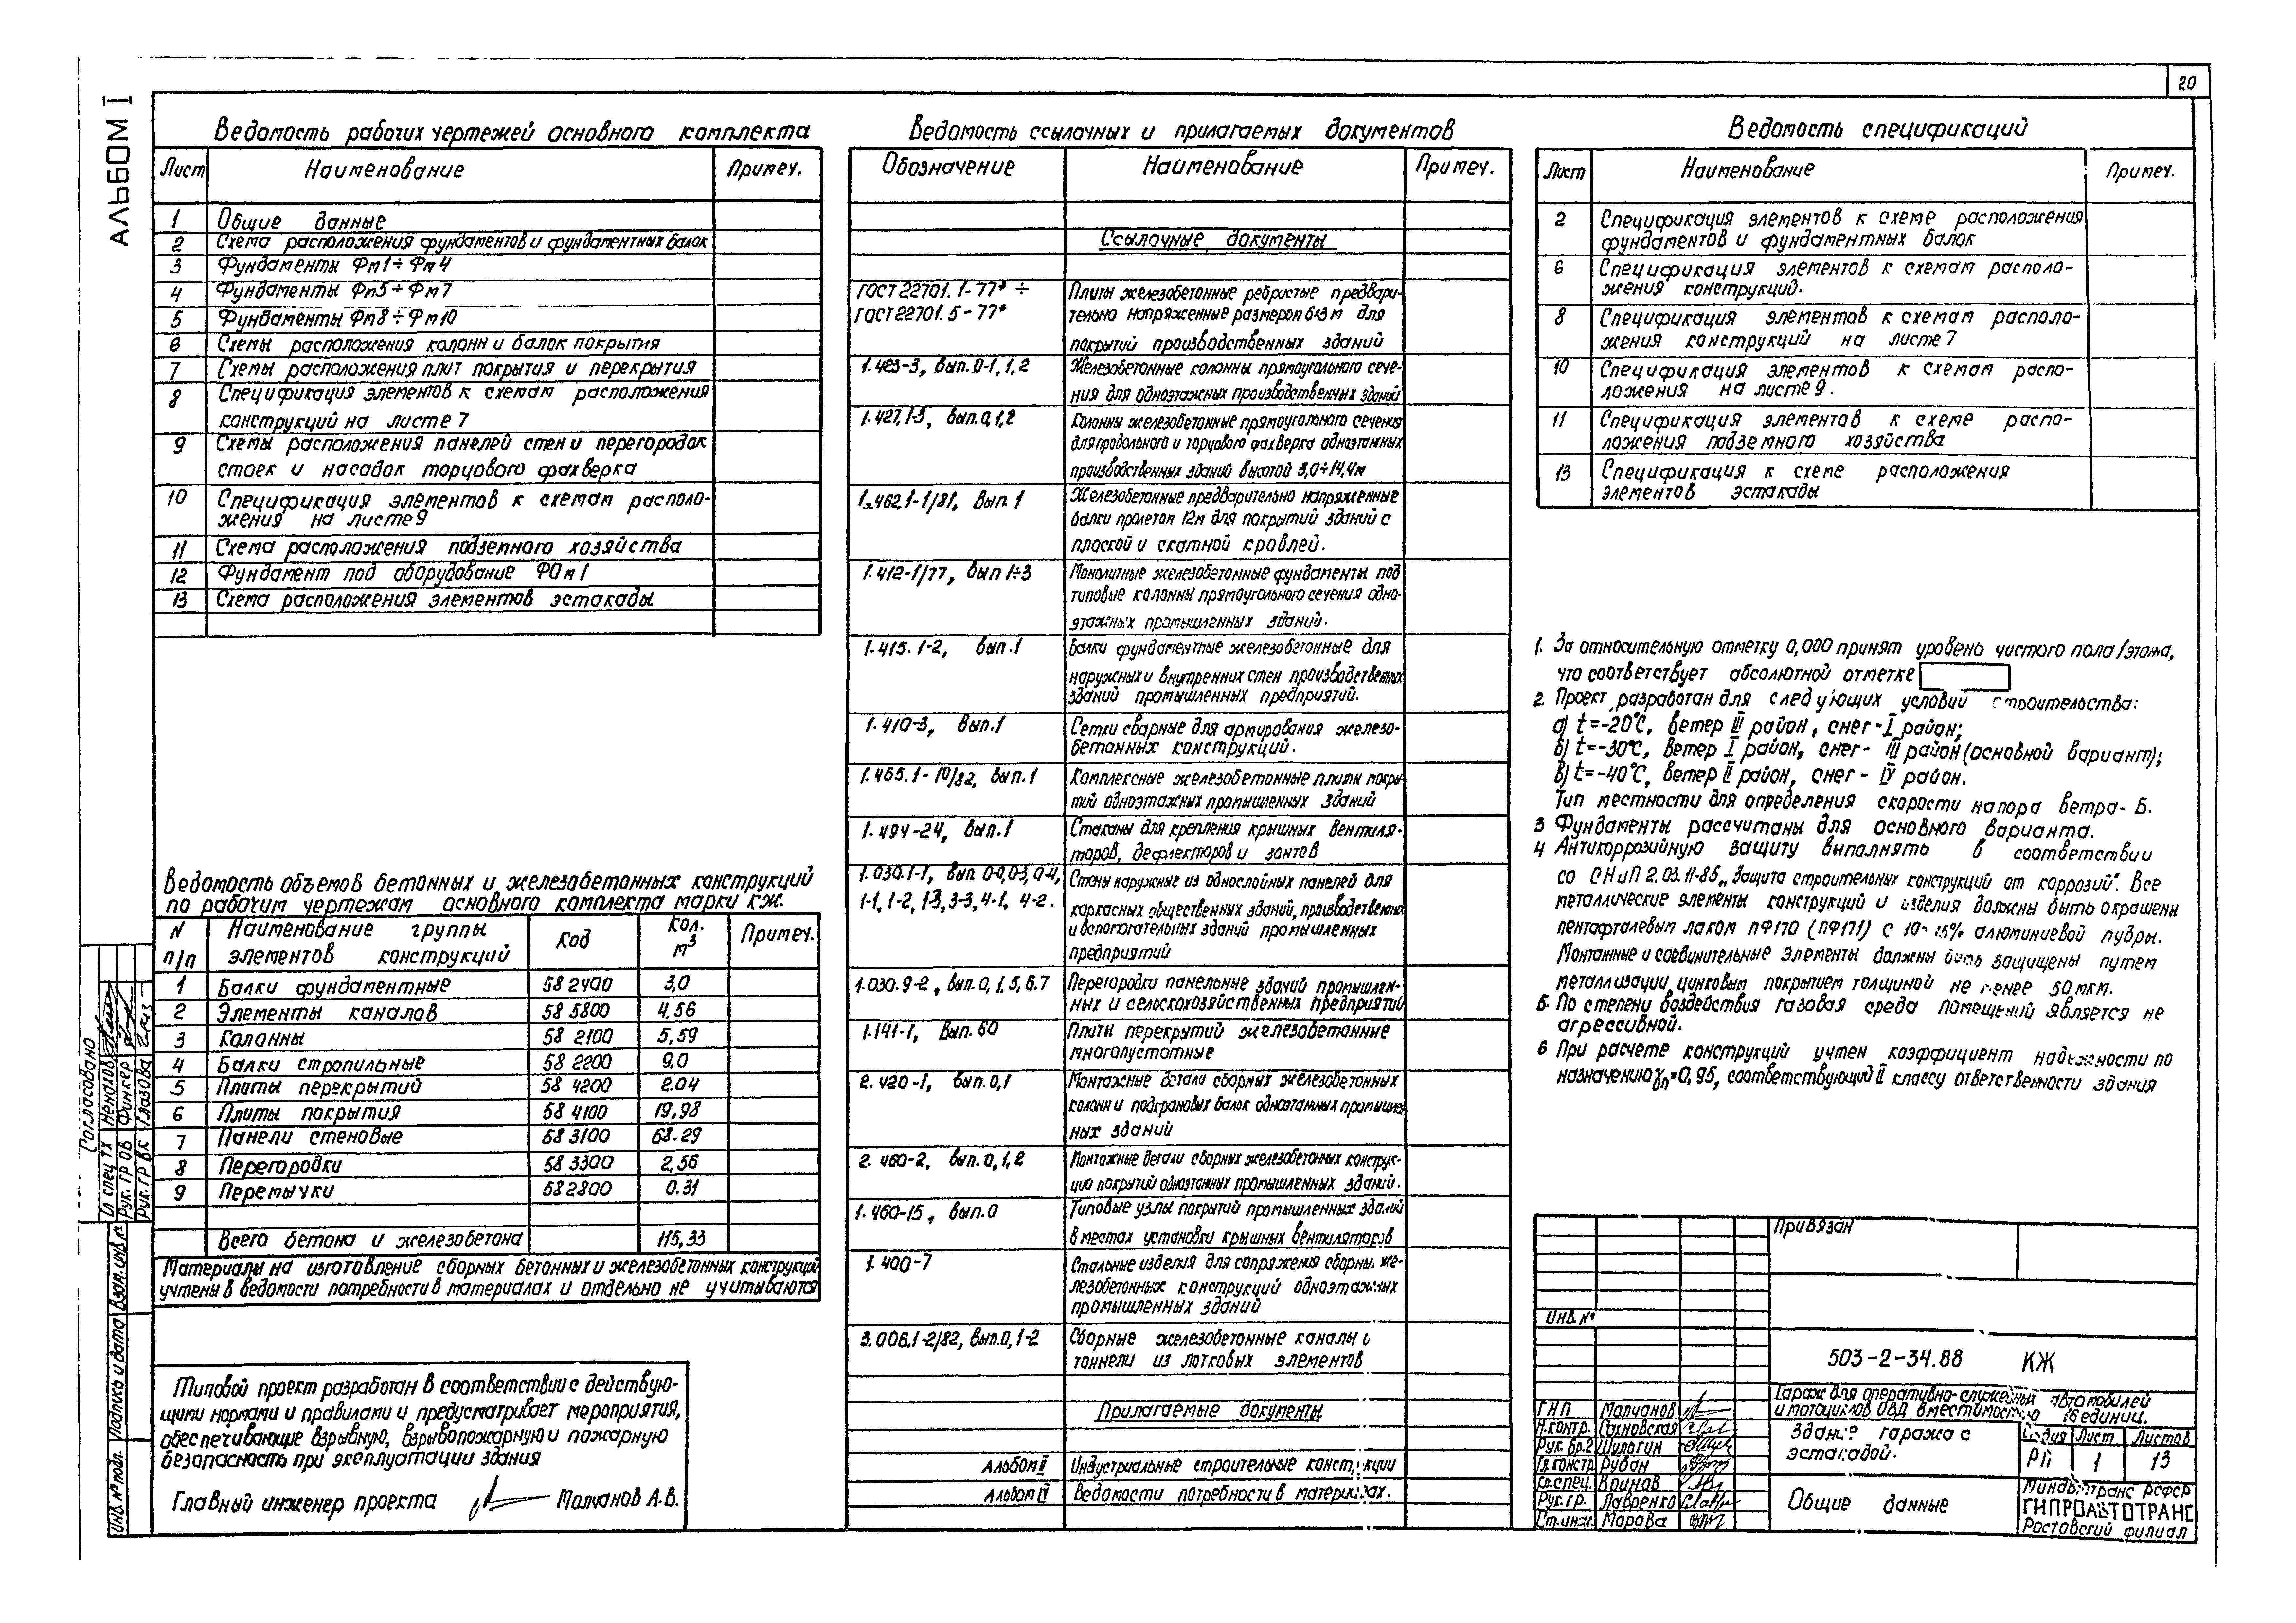 20
АЛЬБОМ I
Ведомость рабочих чертежей основного комплекта
Лист Наименование Примеч.
1 Общие данные
2 Схема расположения фундаментов и фундаментных балок
3 Фундаменты Фм1÷Фм4
4 Фундаменты Фм5÷Фм7
5 Фундаменты Фм8÷Фм10
6 Схемы расположения колонн и балок покрытия
7 Схемы расположения плит покрытия и перекрытия
8 Спецификация элементов к схемам расположения
конструкций на листе 7
9 Схемы расположения панелей стен и перегородок
стоек и насадок торцового фахверка
10 Спецификация элементов к схемам располо-
жения на листе 9
11 Схема расположения подземного хозяйства
12 Фундамент под оборудование ФОм1
13 Схема расположения элементов эстакады
Ведомость объемов бетонных и железобетонных конструкций
по рабочим чертежам основного комплекта марки КЖ.
N п/п Наименование группы элементов конструкций Код Кол. м³ Примеч.
1 Балки фундаментные 58 2400 3,0
2 Элементы каналов 58 5800 4,56
3 Колонны 58 2100 5,59
4 Балки стропильные 58 2200 9,0
5 Плиты перекрытий 58 4200 2.04
6 Плиты покрытия 58 4100 19,98
7 Панели стеновые 58 3100 68.29
8 Перегородки 58 3300 2,56
9 Перемычки 58 2800 0.31
Всего бетона и железобетона 115,33
Материалы на изготовление сборных бетонных и железобетонных конструкций
учтены в ведомости потребности в материалах и отдельно не учитываются
Типовой проект разработан в соответствии с действую-
щими нормами и правилами и предусматривает мероприятия,
обеспечивающие взрывную, взрывопожарную и пожарную
безопасность при эксплуатации здания
Главный инженер проекта Молчанов А.В.
Ведомость ссылочных и прилагаемых документов
Обозначение Наименование Примеч.
Ссылочные документы
ГОСТ 22701.1-77* ÷ Плиты железобетонные ребристые предвари-
ГОСТ 22701.5-77* тельно напряженные размером 6×3м для
покрытий производственных зданий
1.423-3, вып. 0-1, 1, 2 Железобетонные колонны прямоугольного сече-
ния для одноэтажных производственных зданий
1.427.1-3, вып. 0,1,2 Колонны железобетонные прямоугольного сечения
для продольного и торцового фахверка одноэтажных
производственных зданий высотой 3,0÷14,4м
1.462.1-1/81, вып. 1 Железобетонные предварительно напряженные
балки пролетом 12м для покрытий зданий с
плоской и скатной кровлей.
1.412-1/77, вып 1÷3 Монолитные железобетонные фундаменты под
типовые колонны прямоугольного сечения одно-
этажных промышленных зданий.
1.415.1-2, вып.1 Балки фундаментные железобетонные для
наружных и внутренних стен производственных
зданий промышленных предприятий.
1.410-3, вып.1 Сетки сварные для армирования железо-
бетонных конструкций.
1.465.1-10/82, вып.1 Комплексные железобетонные плиты покры-
тий одноэтажных промышленных зданий
1.494-24, вып.1 Стаканы для крепления крышных вентиля-
торов, дефлекторов и зонтов
1.030.1-1, вып 0-0, 0-3, 0-4, Стены наружные из однослойных панелей для
1-1, 1-2, 1-3, 3-3, 4-1, 4-2. каркасных общественных зданий, производственных
и вспомогательных зданий промышленных
предприятий
1.030.9-2, вып. 0, 1, 5, 6.7 Перегородки панельные зданий промышлен-
ных и сельскохозяйственных предприятий
1.141-1, вып. 60 Плиты перекрытий железобетонные
многопустотные
2.420-1, вып.0,1 Монтажные детали сборных железобетонных
колонн и подкрановых балок одноэтажных промышлен
ных зданий
2.460-2, вып.0,1,2 Монтажные детали сборных железобетонных конструк-
цию покрытий одноэтажных промышленных зданий.
1.460-15, вып.0 Типовые узлы покрытий промышленных зданий
в местах установки крышных вентиляторов
1.400-7 Стальные изделия для сопряжения сборны. же-
лезобетонных конструкций одноэтажных
промышленных зданий
3.006.1-2/82, вып.0, 1-2 Сборные железобетонные каналы и
тоннели из лотковых элементов
Прилагаемые документы
Альбом II Индустриальные строительные конструкции
Альбом IV Ведомости потребности в материалах.
Ведомость спецификаций
Лист Наименование Примеч.
2 Спецификация элементов к схеме расположения
фундаментов и фундаментных балок
6 Спецификация элементов к схемам располо-
жения конструкций.
8 Спецификация элементов к схемам располо-
жения конструкций на листе 7
10 Спецификация элементов к схемам распо-
ложения на листе 9.
11 Спецификация элементов к схеме распо-
ложения подземного хозяйства
13 Спецификация к схеме расположения
элементов эстакады
1. За относительную отметку 0,000 принят уровень чистого пола 1этажа,
что соответствует абсолютной отметке
2. Проект разработан для следующих условий строительства:
а) t=-20°С, ветер III район, снег-I район;
б) t=-30°С, ветер I район, снег- III район (основной вариант);
в) t=-40°С, ветер II район, снег - IV район.
Тип местности для определения скорости напора ветра - Б.
3 Фундаменты рассчитаны для основного варианта.
4 Антикоррозийную защиту выполнять в соответствии
со СНиП 2.03.11-85 „Защита строительных конструкций от коррозий". Все
металлические элементы конструкций и изделия должны быть окрашены
пентафталевым лаком ПФ170 (ПФ171) с 10-15% алюминиевой пудры.
Монтажные и соединительные элементы должны быть защищены путем
металлизации цинковым покрытием толщиной не менее 50мкм.
5. По степени воздействия газовая среда помещений является не
агрессивной.
6 При расчете конструкций учтен коэффициент надежности по
назначению γn=0,95, соответствующий II классу ответственности здания
Привязан
Инв.№
503-2-34.88 КЖ
Гараж для оперативно-служебных автомобилей
и мотоциклов ОВД вместимостью единиц.
Здание гаража с
эстакадой.
Стадия Лист Листов
РП 1 13
Общие данные
Минавтотранс РСФСР
ГИПРОАВТОТРАНС
Ростовский филиал
ГИП Молчанов
Н.контр. Сахновская
Рук.бр.2 Шулогин
Гл.констр Рубан
Гл.спец. Воинов
Рук.гр. Лавренко
Ст.инж. Марова
Согласовано
Гл спец ТХ Ненахов
Рук. гр ОВ Финкер
Рук. гр ВК Глазова
Взам.инв.№
Подпись и дата
Инв.№ подл.